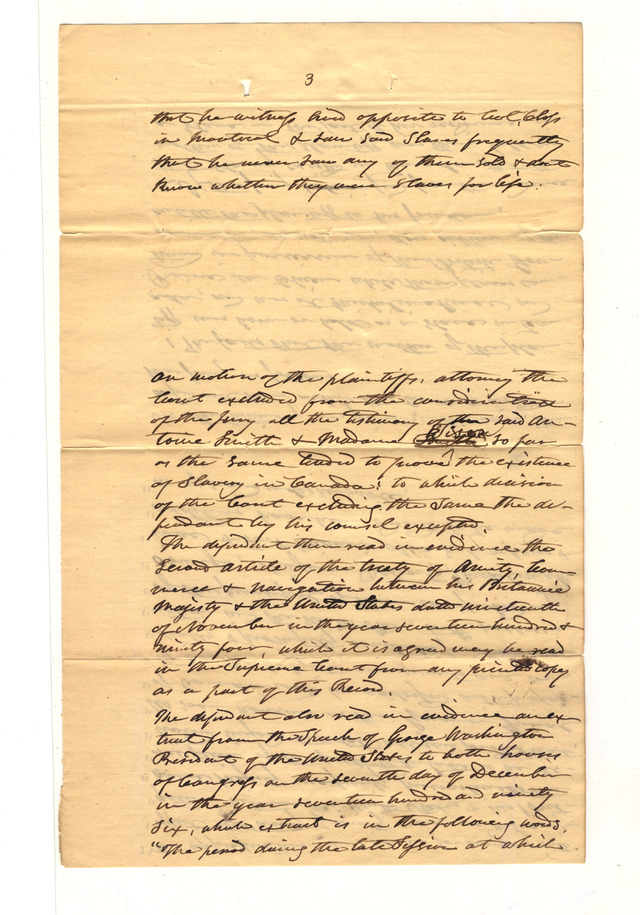 3
that he witness lived opposite to Col. Closs
in Montreal & saw said Slaves frequently
that he never saw any of them sold & dont
Know whether they were Slaves for life.
On motion of the plaintiffs, attorney the
Court excluded from the consideration
of the Jury all the testimony of the said An-
toine Smith & Madame Bison so far
as the same tended to prove the existence
of Slavery in Canada: to which decision
of the Court excluding the same the de-
fendant by his counsel excepted.
The defendant then read in evidence the
Second article of the treaty of Amity Com
merce & navigation between his Britanic
Majesty & the United States dated nineteenth
of November in the year seventeen hundred &
ninety four, which it is agreed may be read
in the Supreme Court from any printed copy
as a part of this Record.
The defendant also read in evidence an ex
tract from the Speech of George Washington
President of the United States to both houses
of Congress on the seventh day of December
in the year seventeen hundred and ninety
Six, which extract is in the following words,
"The period during the late Session at which